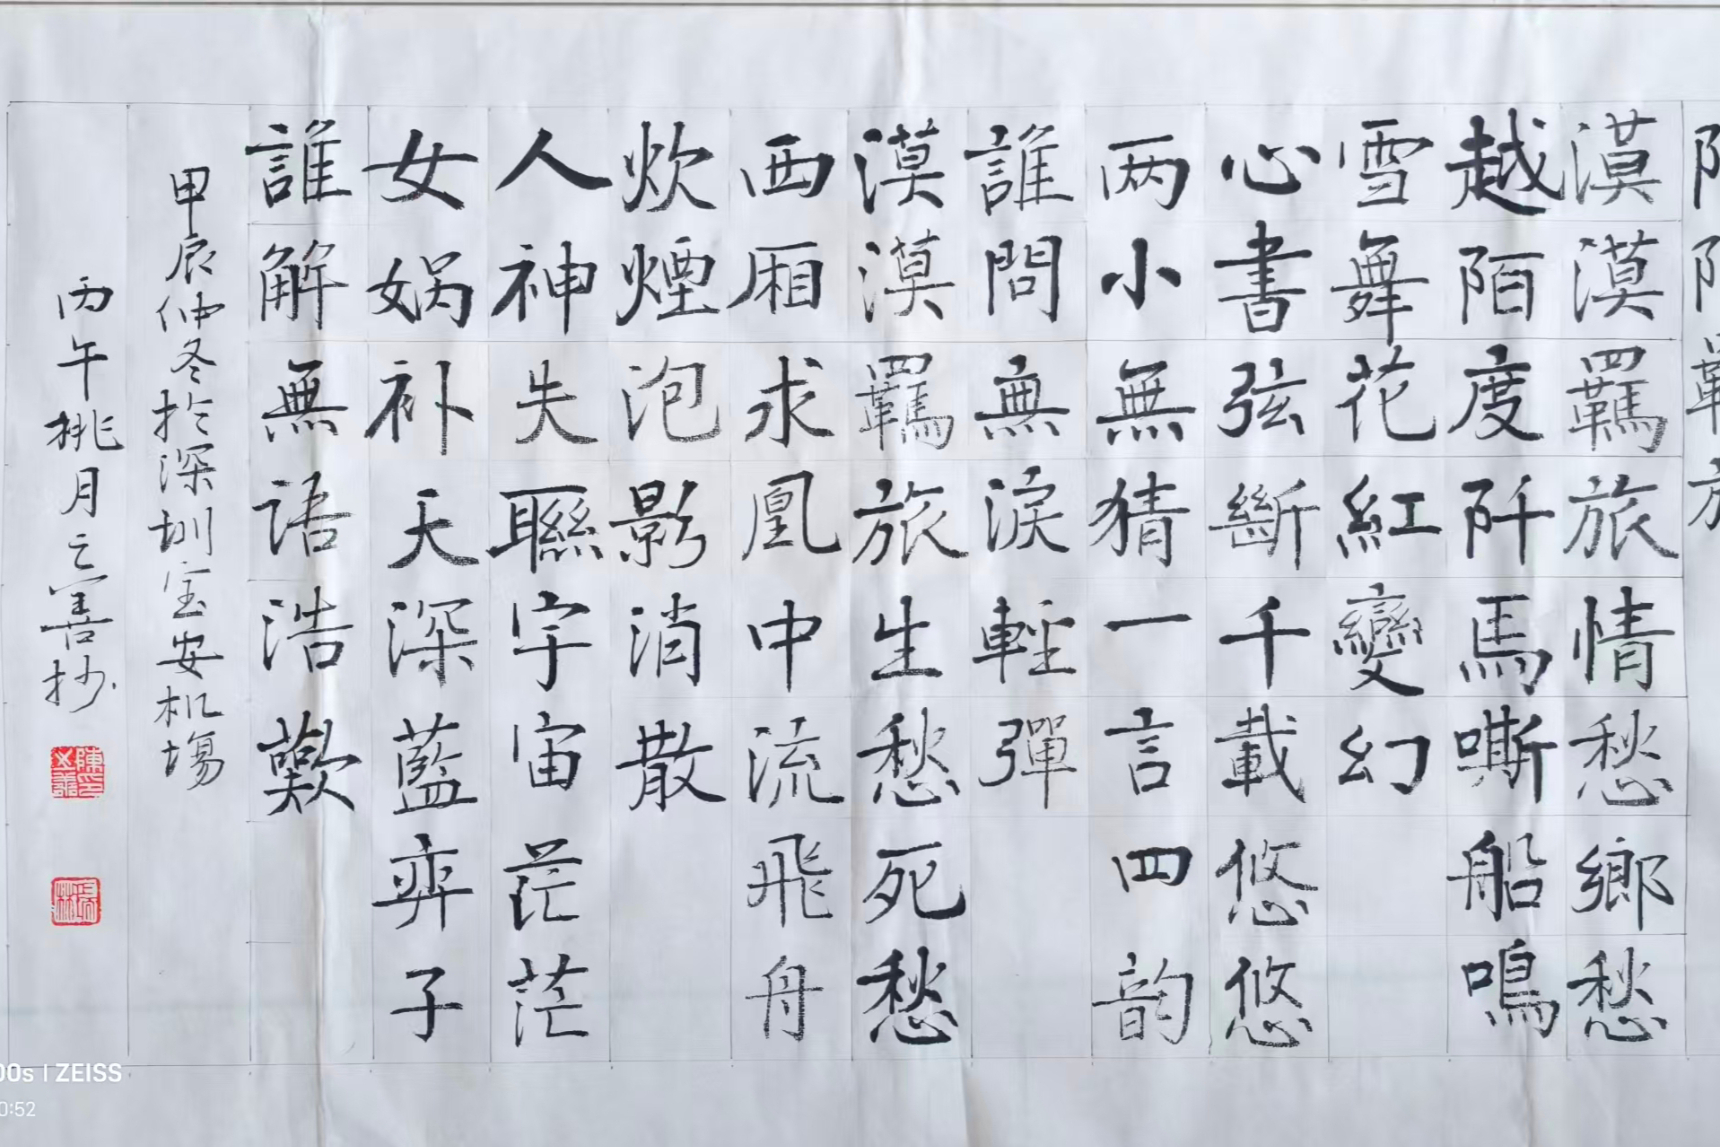 漠漠羈旅情愁鄉愁
越陌度阡馬嘶船鳴
雪舞花紅變幻
心書弦斷千載悠悠
两小無猜一言四韵
誰問無淚輕彈
漠漠羈旅生愁死愁
西厢求凰中流飛舟
炊煙泡影消散
人神失聯宇宙茫茫
女娲补天深藍弈子
誰解無语浩歎
甲辰仲冬於深圳宝安机場
丙午桃月之善抄
00s | ZEISS
0:52